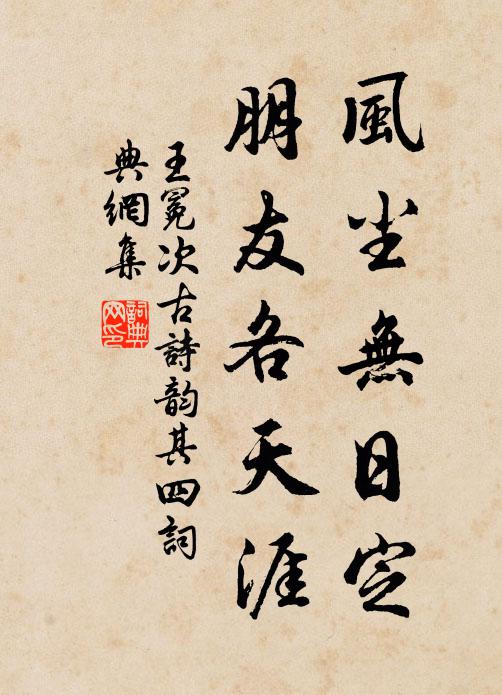 風尘無日定
朋友各天涯
王冕次古詩韵其四詞
典網集
詞典
网印